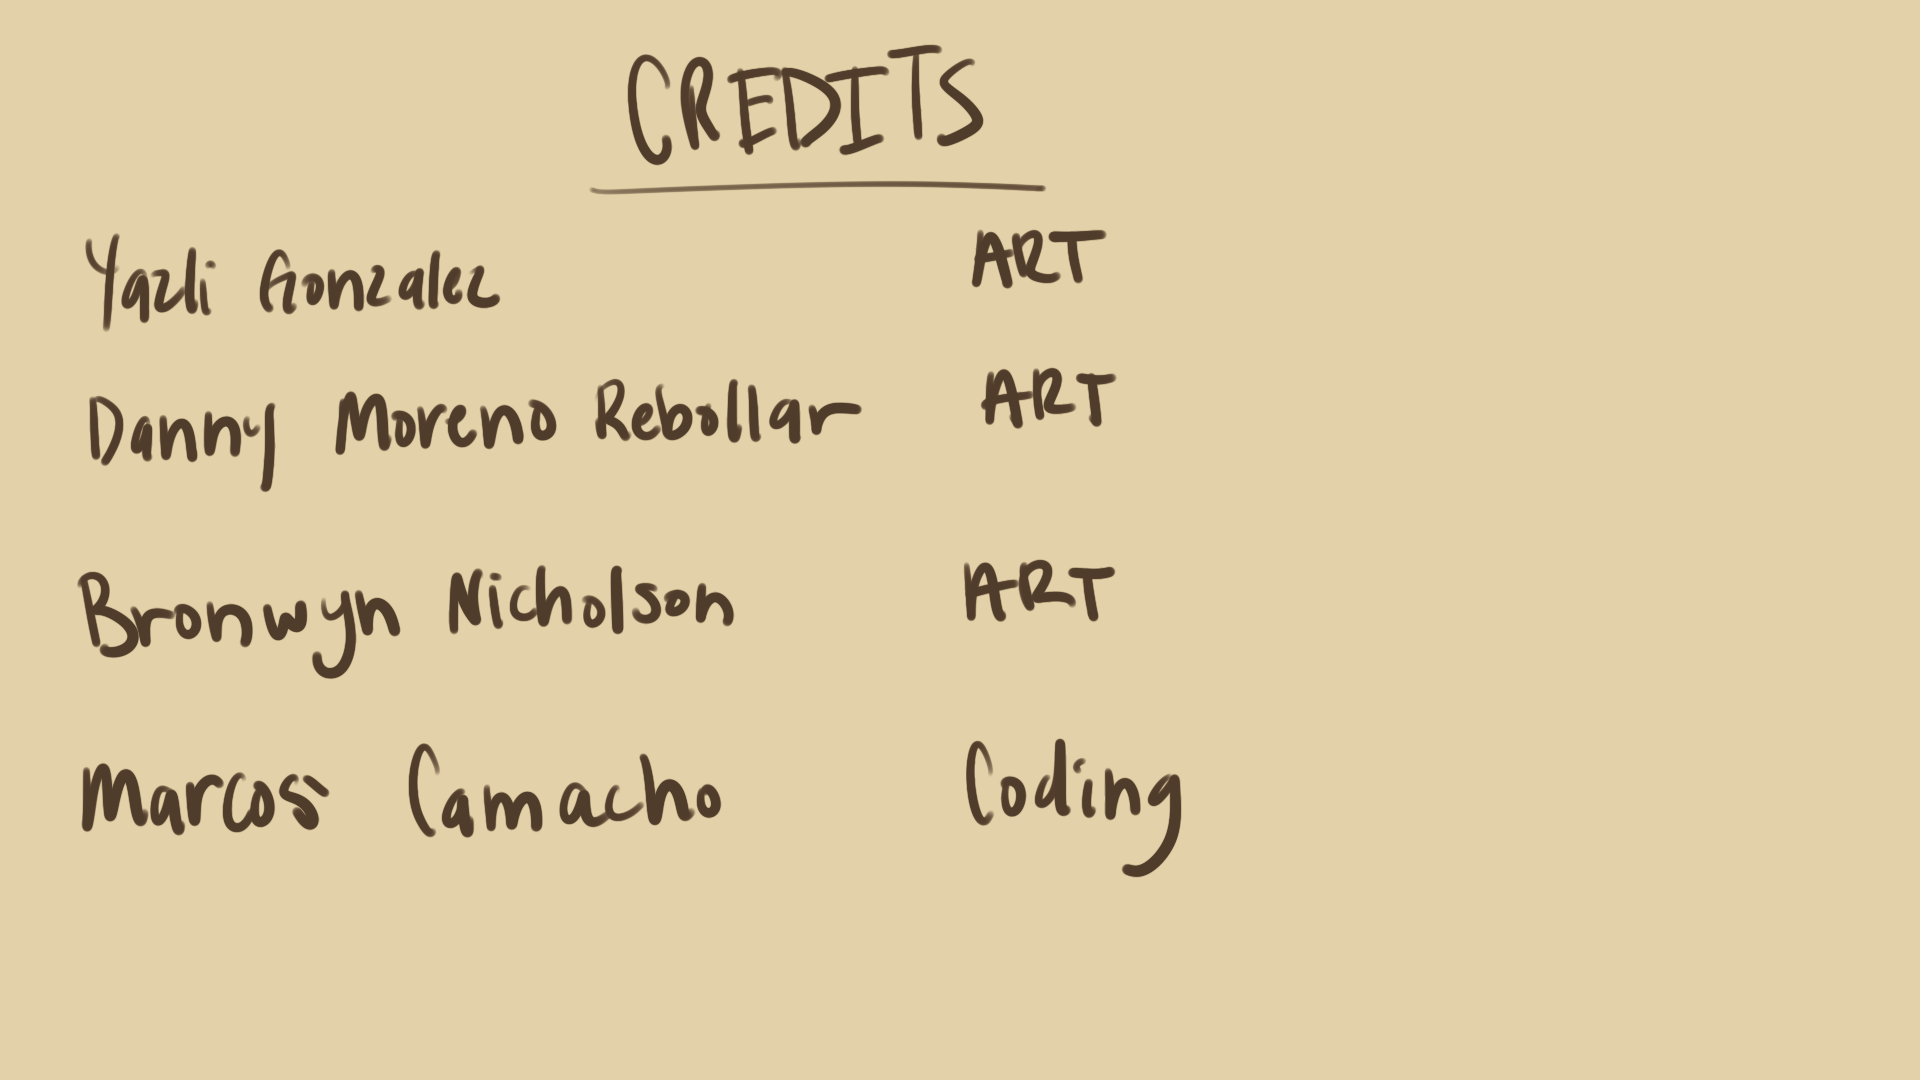 CREDITS
Yazli Gonzalez ART
Danny Moreno Rebollar ART
Bronwyn Nicholson ART
Marcos Camacho Coding